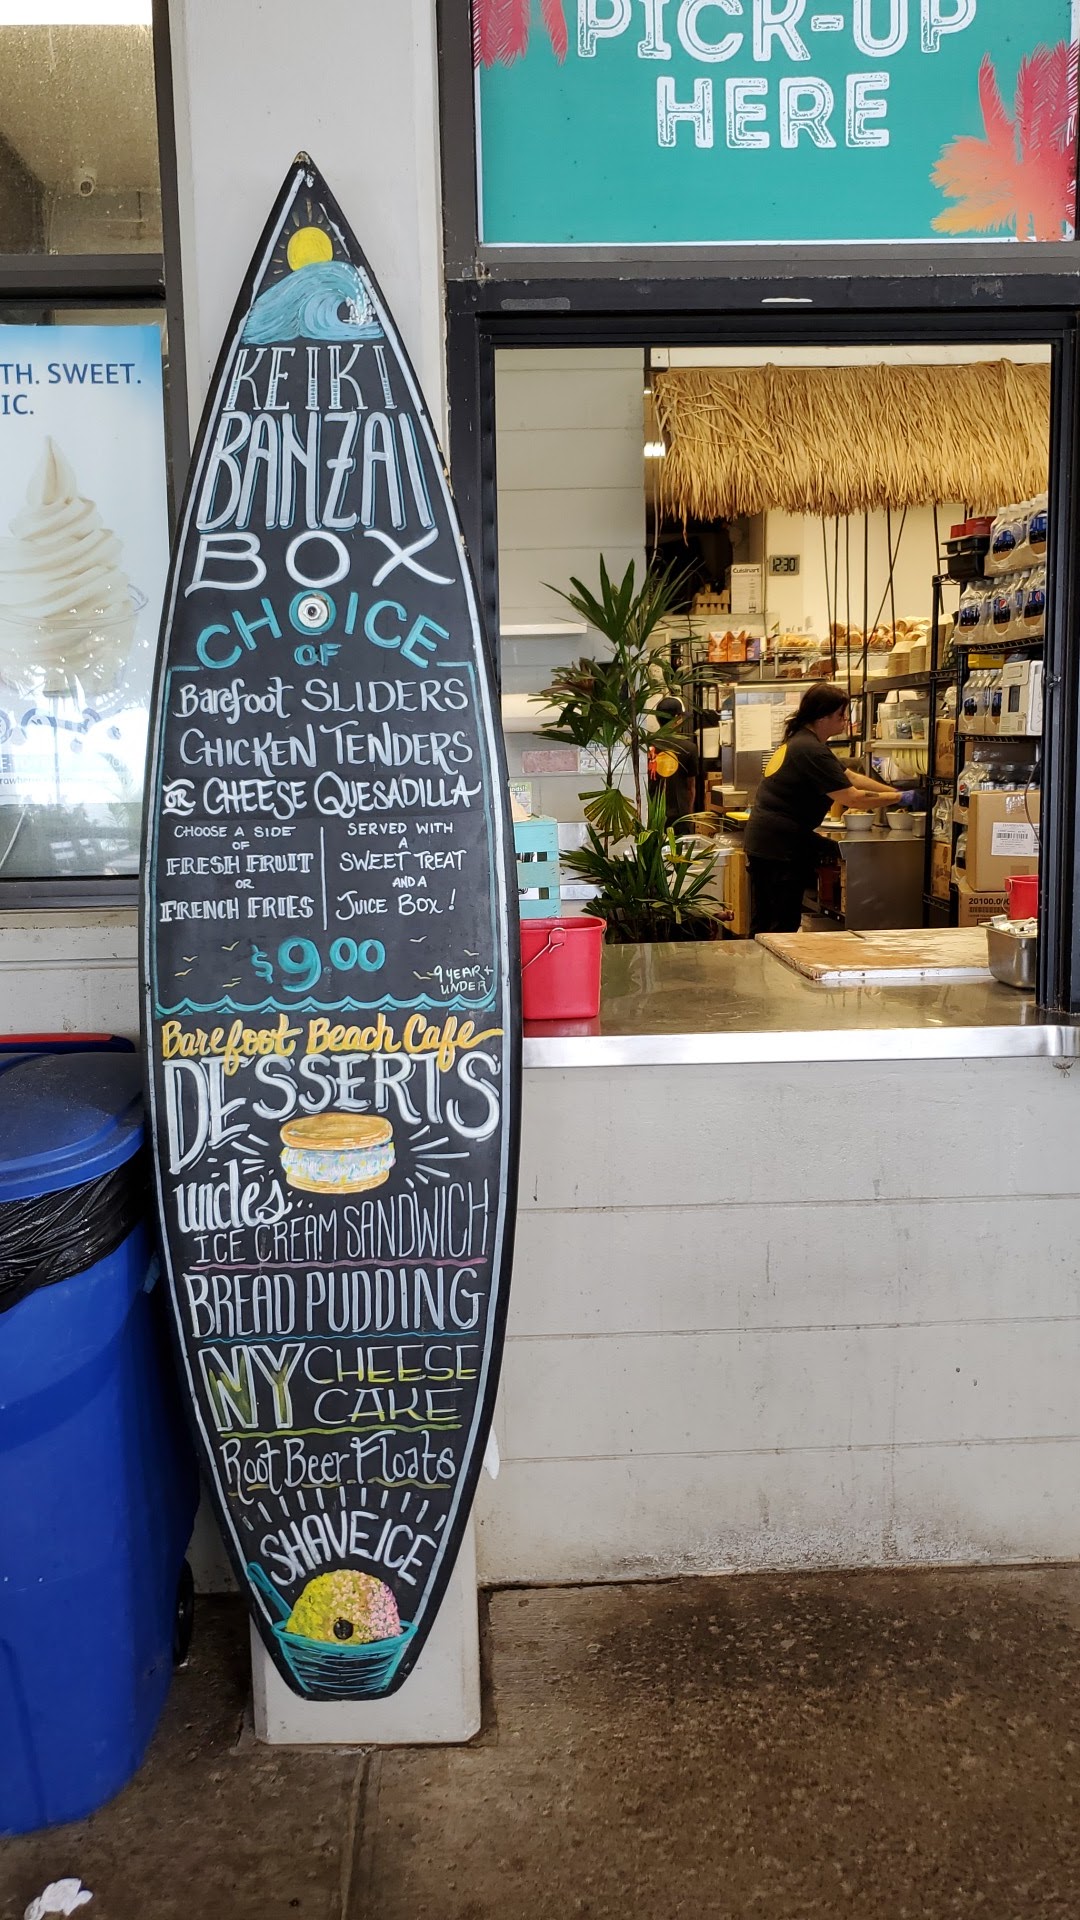 PICK-UP
HERE
TH. SWEET.
IC.
KEIKI
BANZAI
BOX
CHOICE
OF
Barefoot SLIDERS
CHICKEN TENDERS
OR CHEESE QUESADILLA
CHOOSE A SIDE
OF
FRESH FRUIT
OR
FRENCH FRIES
SERVED WITH
A
SWEET TREAT
AND A
JUICE BOX!
$9.00
9 YEAR +
UNDER
Barefoot Beach Cafe
DESSERTS
uncle's
ICE CREAM SANDWICH
BREAD PUDDING
NY CHEESE
CAKE
Root Beer Floats
SHAVE ICE
Cuisinart
12:30